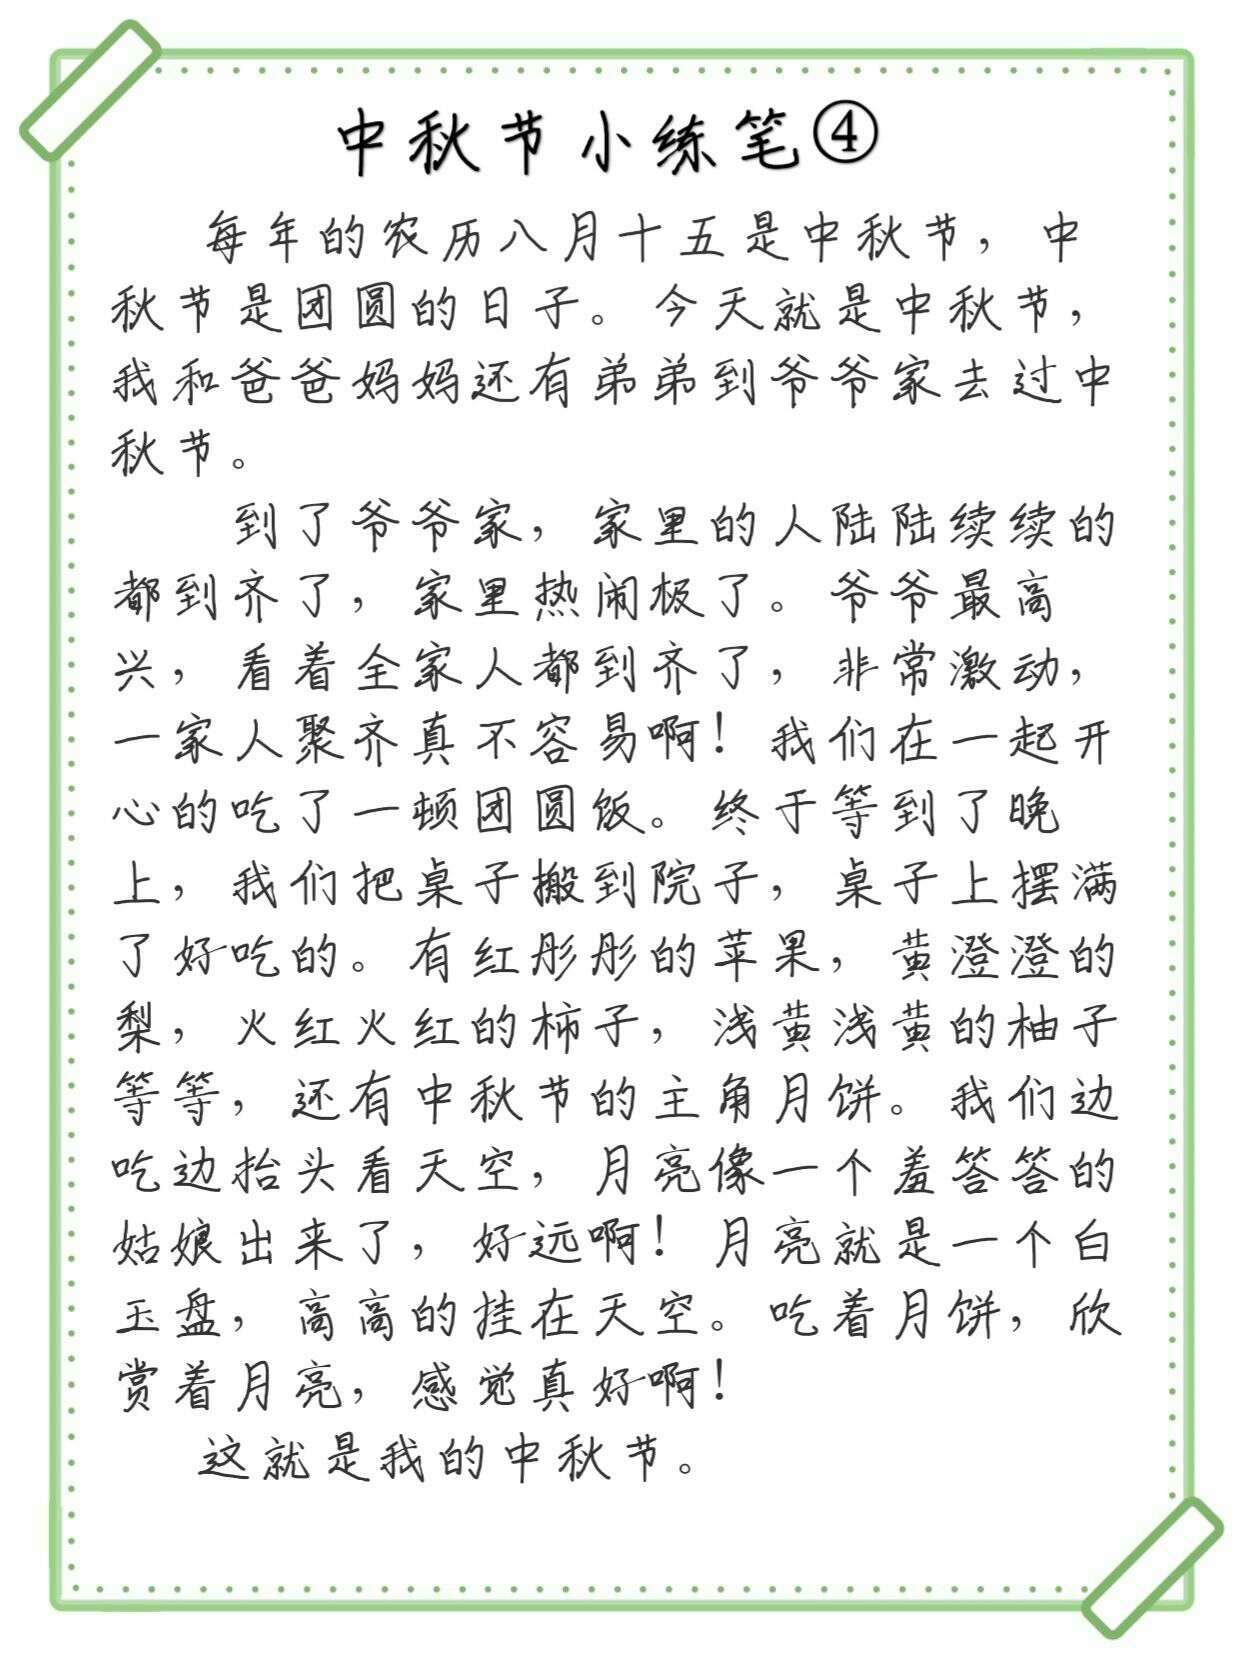 中秋节小练笔④
每年的农历八月十五是中秋节，中
秋节是团圆的日子。今天就是中秋节，
我和爸爸妈妈还有弟弟到爷爷家去过中
秋节。
到了爷爷家，家里的人陆陆续续的
都到齐了，家里热闹极了。爷爷最高
兴，看着全家人都到齐了，非常激动，
一家人聚齐真不容易啊！我们在一起开
心的吃了一顿团圆饭。终于等到了晚
上，我们把桌子搬到院子，桌子上摆满
了好吃的。有红彤彤的苹果，黄澄澄的
梨，火红火红的柿子，浅黄浅黄的柚子
等等，还有中秋节的主角月饼。我们边
吃边抬头看天空，月亮像一个羞答答的
姑娘出来了，好远啊！月亮就是一个白
玉盘，高高的挂在天空。吃着月饼，欣
赏着月亮，感觉真好啊！
这就是我的中秋节。